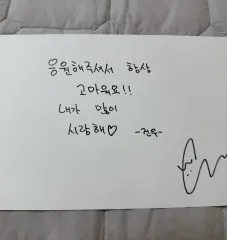 응원해주셔서 항상
고마워요!!
내가 많이
사랑해♡ -건우-